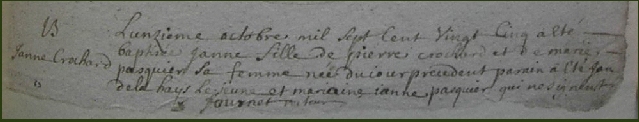 B
Janne Crochard
6
Lunzieme octobre mil sept cent Vingt Cinq a esté
baptisée janne fille de pierre crochard et de marie
pasquier sa femme née du jour precedent parain a esté Jan
de la hays le jeune et maraine janne pasquier qui ne signent